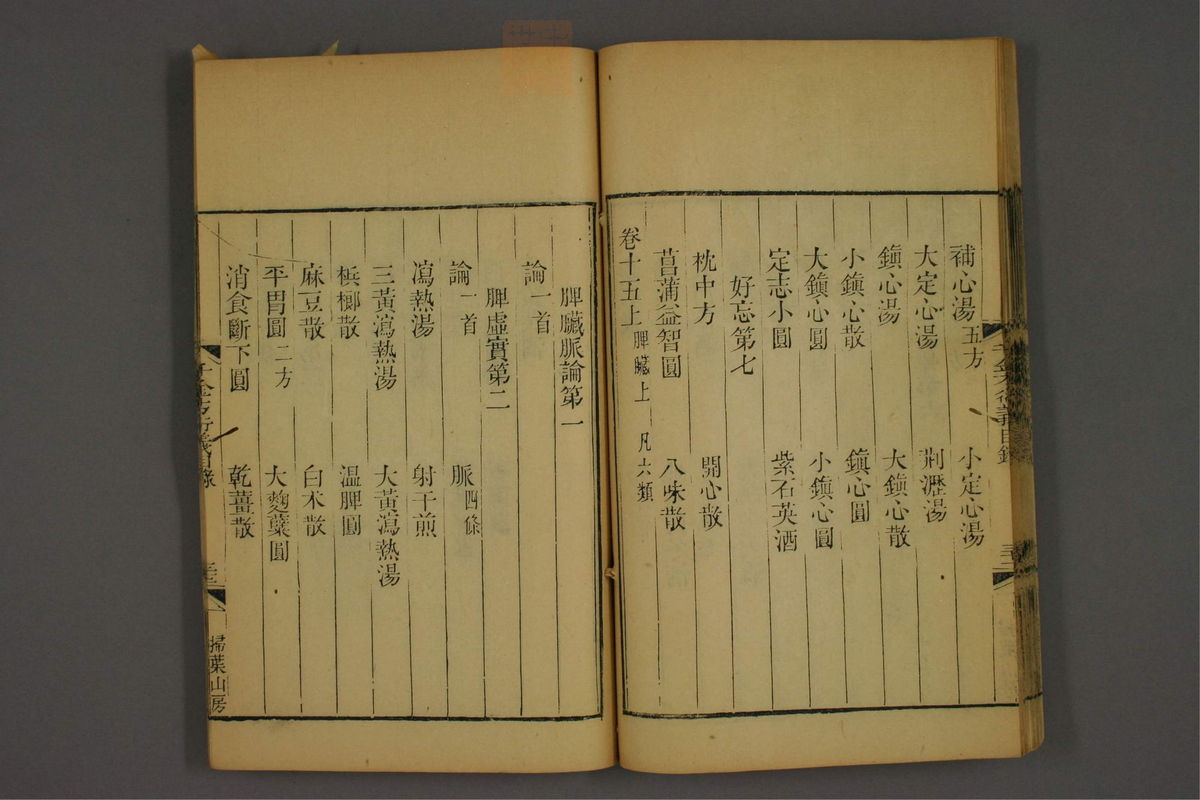 補心湯五方 小定心湯
大定心湯 荆瀝湯
鎭心湯 大鎭心散
小鎭心散 鎭心圓
大鎭心圓 小鎭心圓
定志小圓 紫石英酒
好忘第七
枕中方 開心散
菖蒲益智圓 八味散
卷十五上 脾臟上 凡六類
脾臟脈論第一
論一首
脾虛實第二
論一首 脈四條
瀉熱湯 射干煎
三黃瀉熱湯 大黃瀉熱湯
檳榔散 溫脾圓
麻豆散 白朮散
平胃圓二方 大麴蘗圓
消食斷下圓 乾薑散
掃葉山房